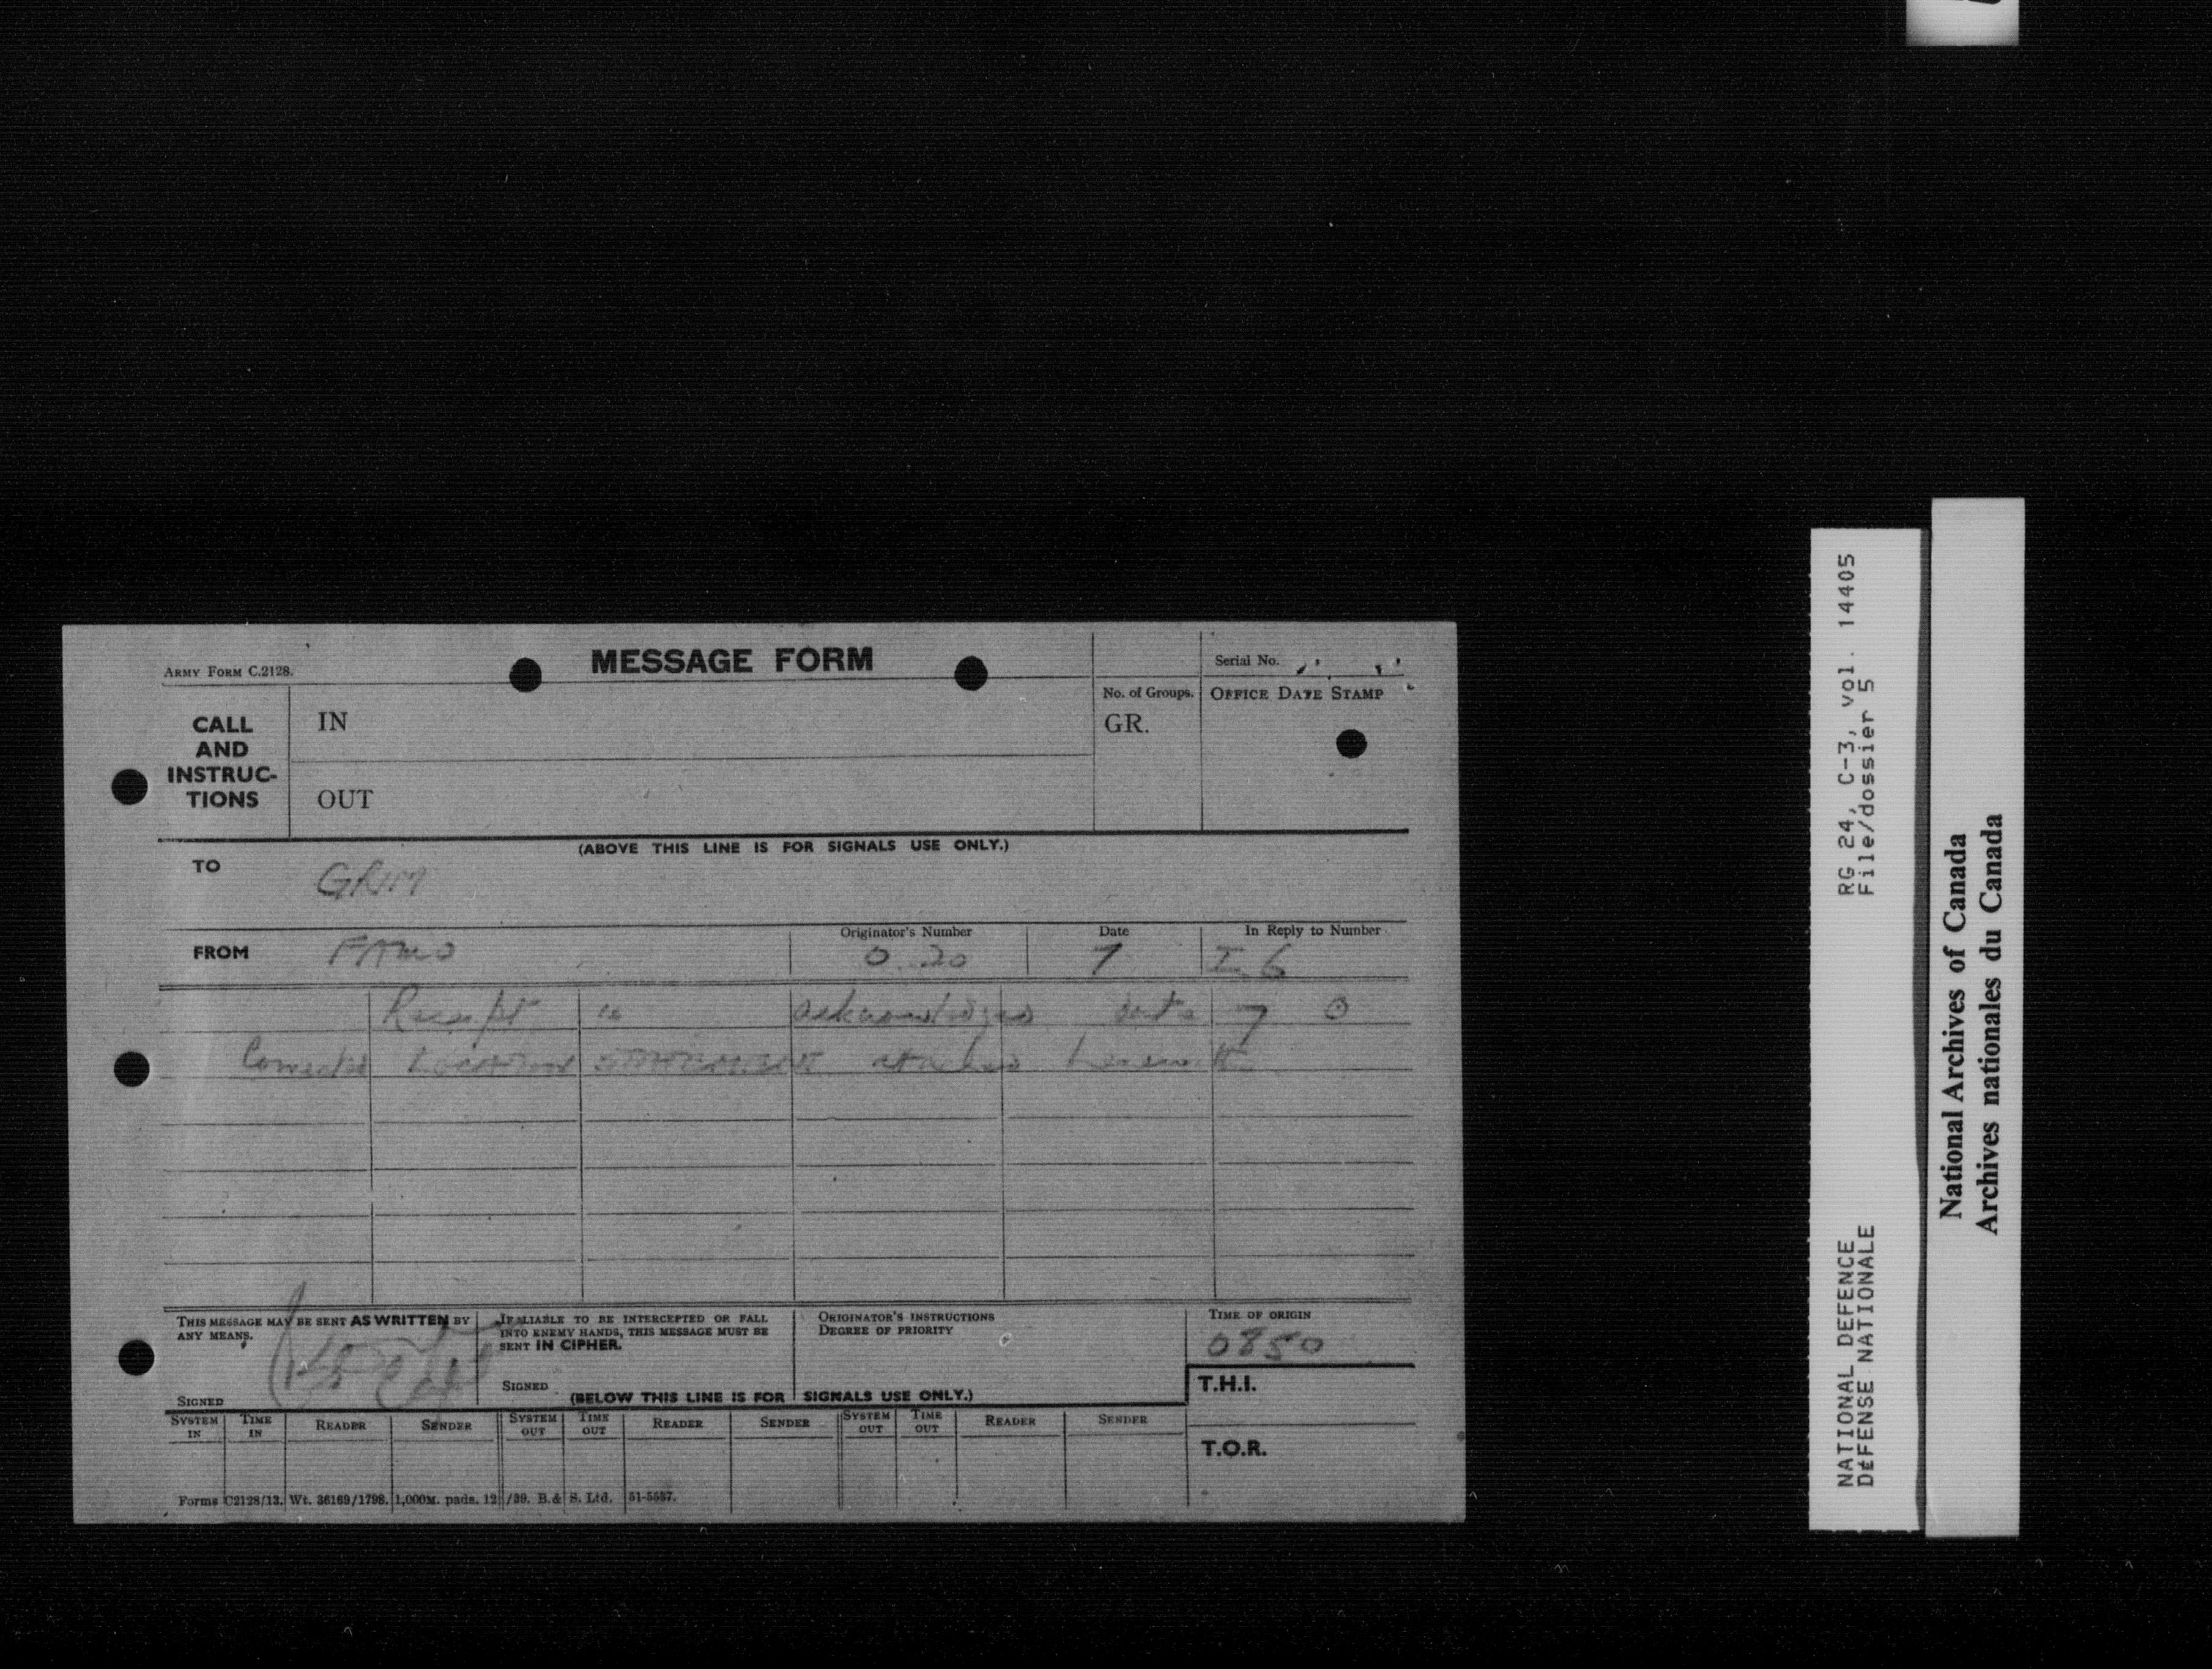 ARMY FORM C.2128.
MESSAGE FORM
Serial No.
CALL AND INSTRUC-TIONS
IN
OUT
No. of Groups.
GR.
OFFICE DATE STAMP
(ABOVE THIS LINE IS FOR SIGNALS USE ONLY.)
TO GRIM
FROM FAMO
Originator's Number
O 20
Date
7
In Reply to Number
I 6
Receipt is acknowledged date 7 0
LOCATION STATEMENT attached herewith
THIS MESSAGE MAY BE SENT AS WRITTEN BY ANY MEANS.
SIGNED
Capt
IF LIABLE TO BE INTERCEPTED OR FALL INTO ENEMY HANDS, THIS MESSAGE MUST BE SENT IN CIPHER.
SIGNED
ORIGINATOR'S INSTRUCTIONS
DEGREE OF PRIORITY
TIME OF ORIGIN
0850
(BELOW THIS LINE IS FOR SIGNALS USE ONLY.)
T.H.I.
T.O.R.
SYSTEM IN TIME IN READER SENDER SYSTEM OUT TIME OUT READER SENDER SYSTEM OUT TIME OUT READER SENDER
Forms C2128/13. Wt. 36169/1798. 1,000M. pads. 12/39. B.& S. Ltd. 51-5537.
NATIONAL DEFENCE RG 24, C-3, vol. 14405
DÉFENSE NATIONALE File/dossier 5
National Archives of Canada
Archives nationales du Canada